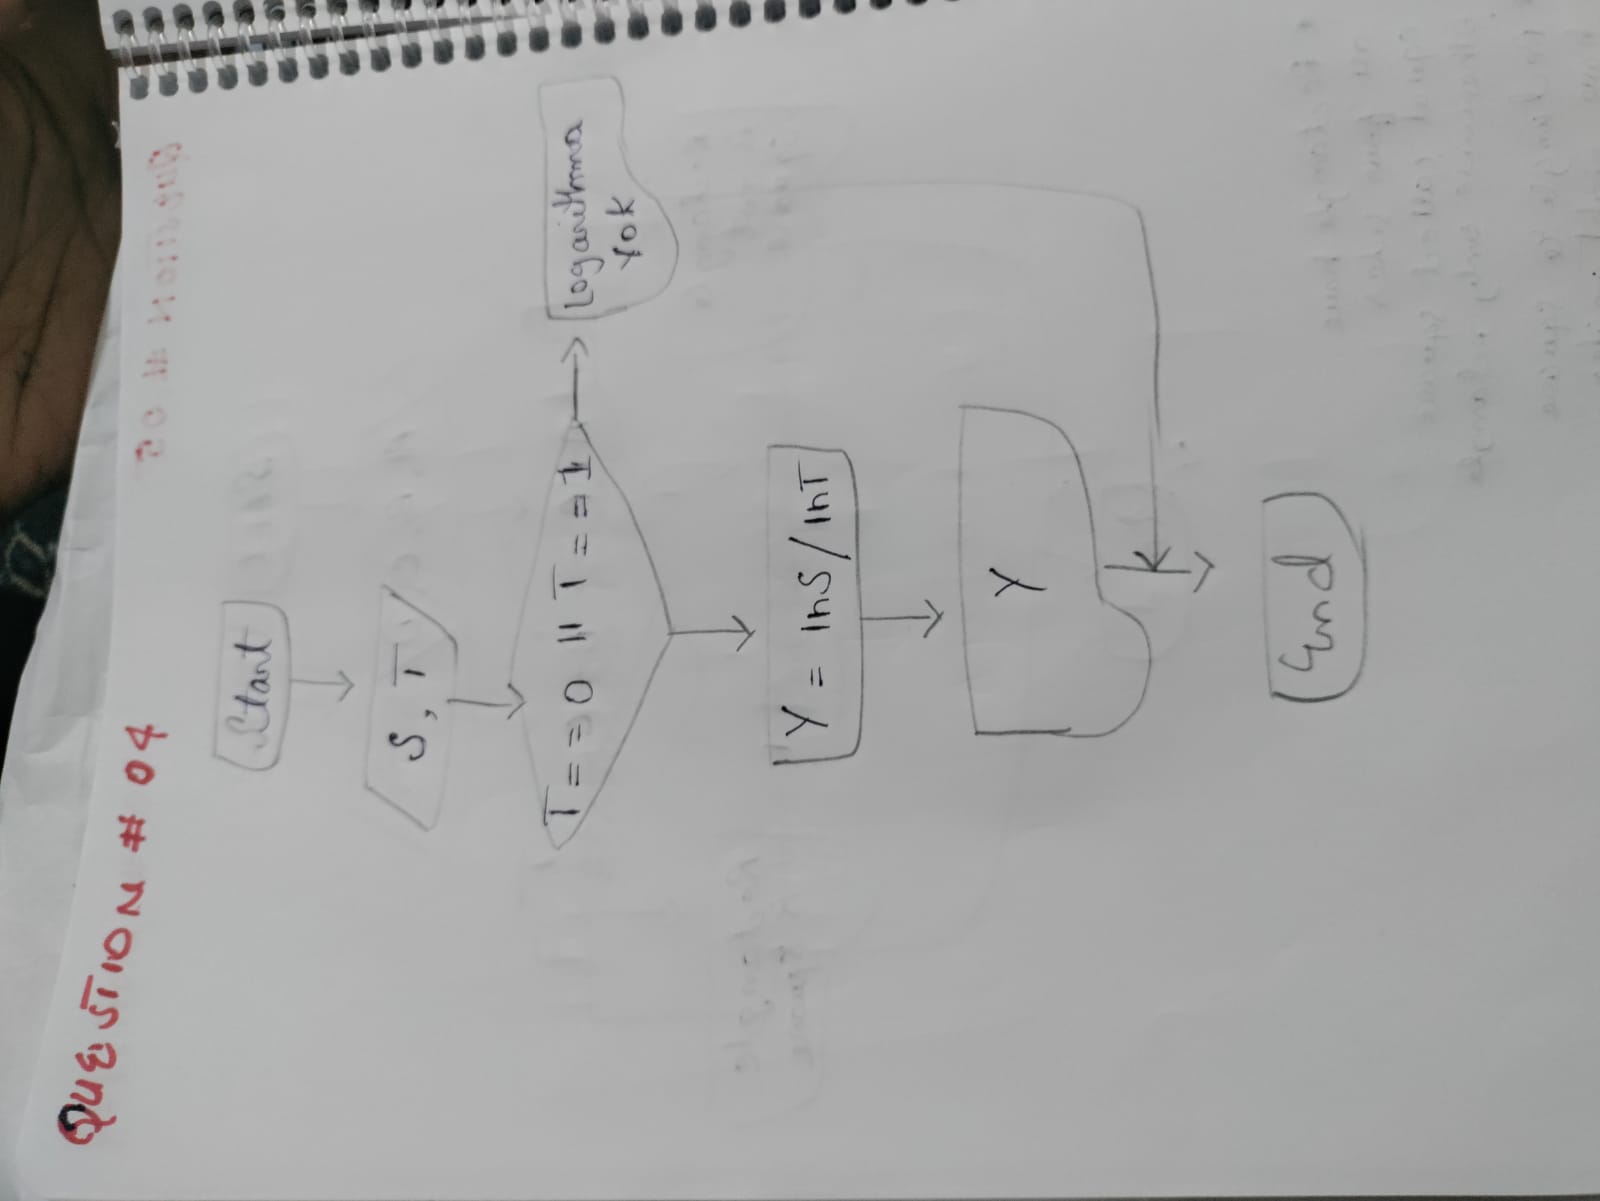 QUESTION # 04
Start
S, T
T = = 0 || T = = 1
Logarithma
Yok
Y = lnS / lnT
Y
End